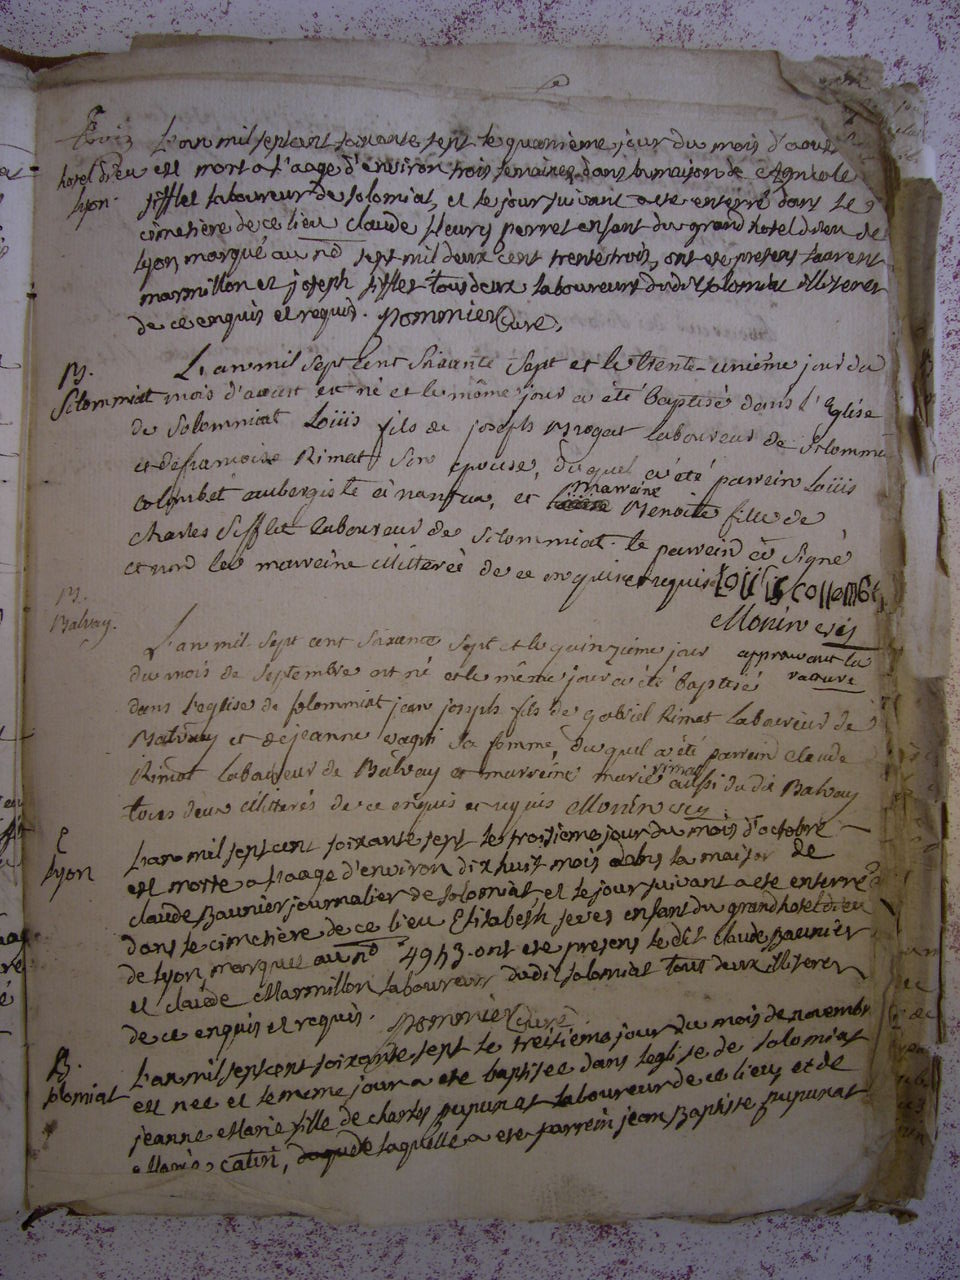 hotel dieu
Lyon.
L'an mil sept cent soixante sept le quatrième jour du mois d'aout
est mort a l'aage d'environ trois semaines dans la maison de
sifflet laboureur de solomiat, et le jour suivant a ete enterré dans le
cimetière de ce lieu claude fleury perret enfant du grand hotel dieu de
Lyon marqué au no sept mil deux cent trente trois, ont ete presens Laurent
marmillon et joseph sifflet tous deux laboureurs dudit solomiat illiteres
de ce enquis et requis. Pommier Curé.
B.
Solommiat
L'an mil sept cent soixante sept et le trente-unième jour du
mois d'aoust est né et le même jour a été baptisé dans l'Eglise
de Solommiat Loüis fils de joseph Brogat laboureur de Solommi
et de francoise Rimat son epouse, duquel a été parrein Loüis
Colombet aubergiste à nantua, et marreine Benoite fille de
Charles Sifflet laboureur de Solommiat. le parrein a signé
et non la marreine illitterée de ce enquise et requise Loüis collombet
Monin
approuvant la
rature
B.
Balvay.
L'an mil sept cent soixante sept et le quinzieme jour
du mois de Septembre est né et le même jour a été baptisé
dans l'eglise de solommiat jean joseph fils de gabriel Rimat laboureur de
Balvay et de jeanne sa femme, duquel a été parrein claude
Rimat laboureur de Balvay et marreine marie rimat aussi du dit Balvay
tous deux illiterés de ce enquis et requis Monin
Lyon
L'an mil sept cent soixante sept le troisieme jour du mois d'octobre
est morte a l'aage d'environ dix huit mois dans la maison de
claude Baunier journalier de solomiat, et le jour suivant a ete enterrée
dans le cimetière de ce lieu Elisabeth enfant du grand hotel dieu
de Lyon marquee au no 4953. ont ete presens le dit claude Baunier
et claude Marmillon laboureur dudit solomiat tous deux illiteres
de ce enquis et requis. Pommier Curé
B.
solomiat
L'an mil sept cent soixante sept le treisieme jour du mois de novembr
est nee et le meme jour a ete baptisee dans l'eglise de solomiat
jeanne Marie fille de charles pupunat laboureur de ce lieu, et de
Marie catin, laquelle a ete parrein jean Baptiste pupunat